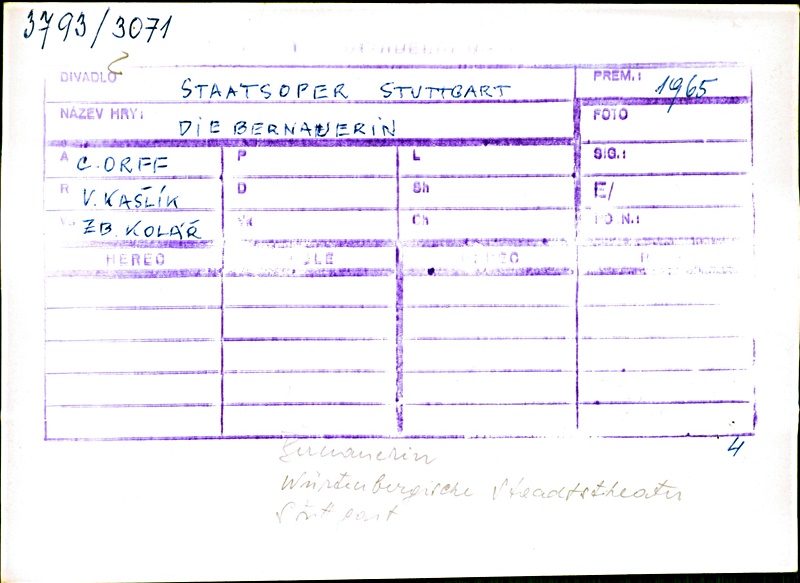 3793/3071
DIVADLO STAATSOPER STUTTGART PREM.: 1965
NÁZEV HRY: DIE BERNAUERIN FOTO
A C. ORFF P L SIG.:
R V. KAŠLÍK D Sh E/
ZB. KOLÁŘ Vk Ch
HEREC
4
Bernauerin
Würtenbergische Staadtstheater
Stuttgart